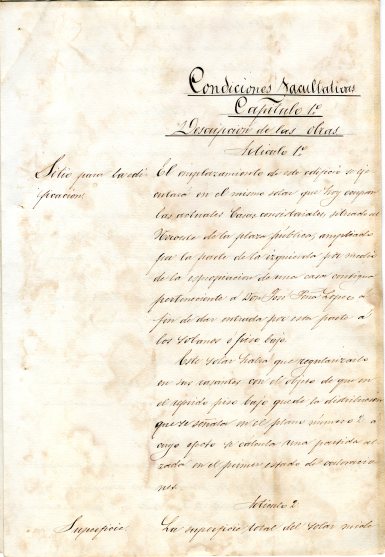 Condiciones Facultativas
Capítulo 1º
Descripción de las obras
Artículo 1º
Sitio para la edi
ficación
El emplazamiento de este edificio se eje
cutará en el mismo solar que hoy ocupan
las actuales Casas consistoriales, situado al
de la plaza pública, ampliado
por la parte de la izquierda por medio
de la espropiacion de una casa contigua
perteneciente a Don José Lopez, a
fin de dar entrada por esta parte á
los sótanos o piso bajo.
Este solar habrá que regularizarlo
en sus rasantes con el objeto de que en
el repetido piso bajo quede la distribucion
que se señala en el plano número 2, a
cuyo efecto se calcula una partida al
zada en el primer estado de valoracio
nes.
Artículo 2
Superficie
La superficie total del solar mide